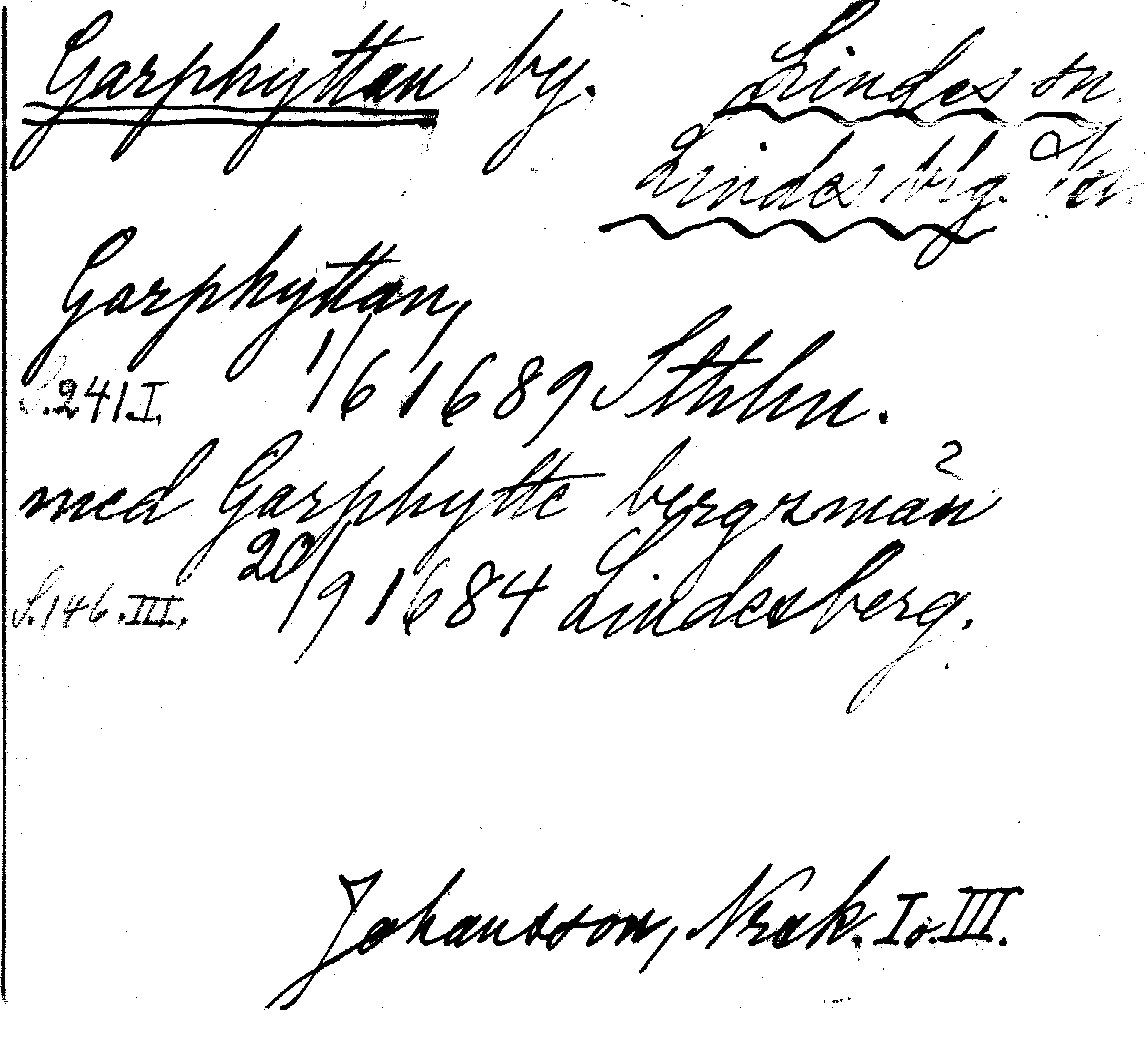 Garphyttan by. Lindes sn
Lindes blg.
Garphyttan,
S.241.I. 1/6 1689 Sthlm.
med Garphytte bergsmän
S.146.III. 20/9 1684 Lindesberg.
Johansson, Nrak. I o. III.